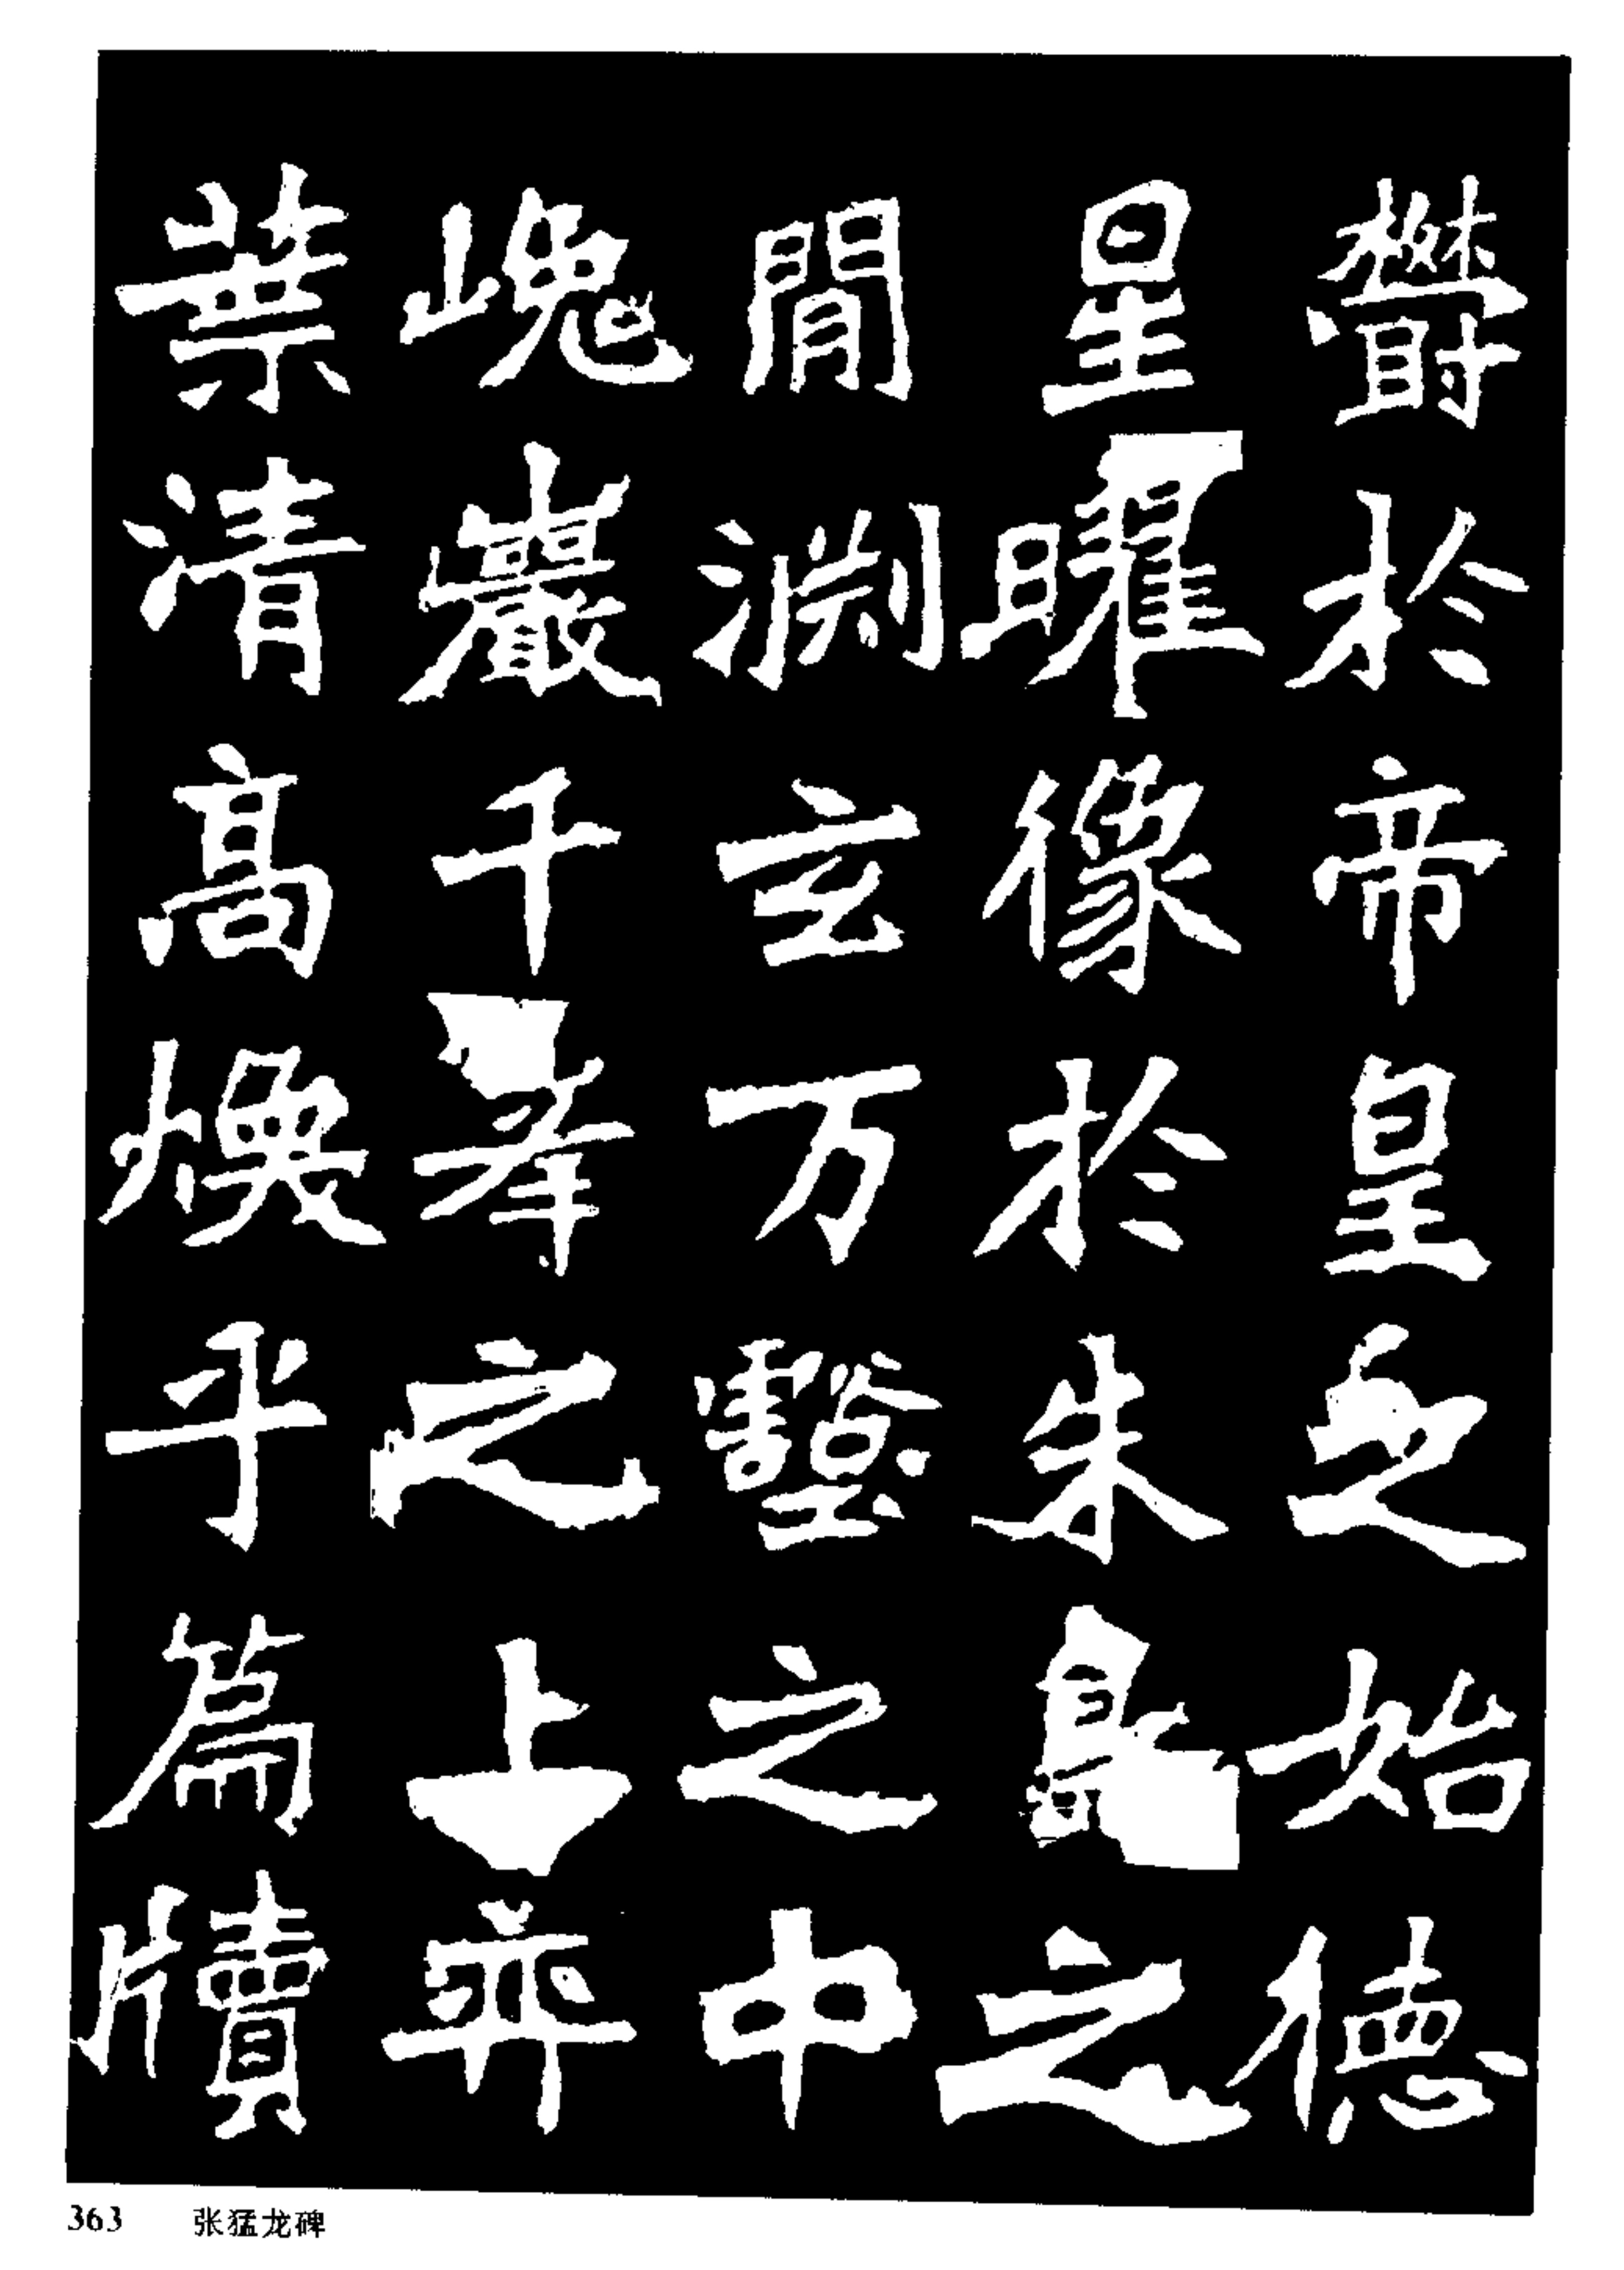 鬱於帝皇之始德
星曜像於朱鳥之
閒淵玄万壑之中
巉巖千峯之上弈
葉清高煥乎篇牘
363 张猛龙碑